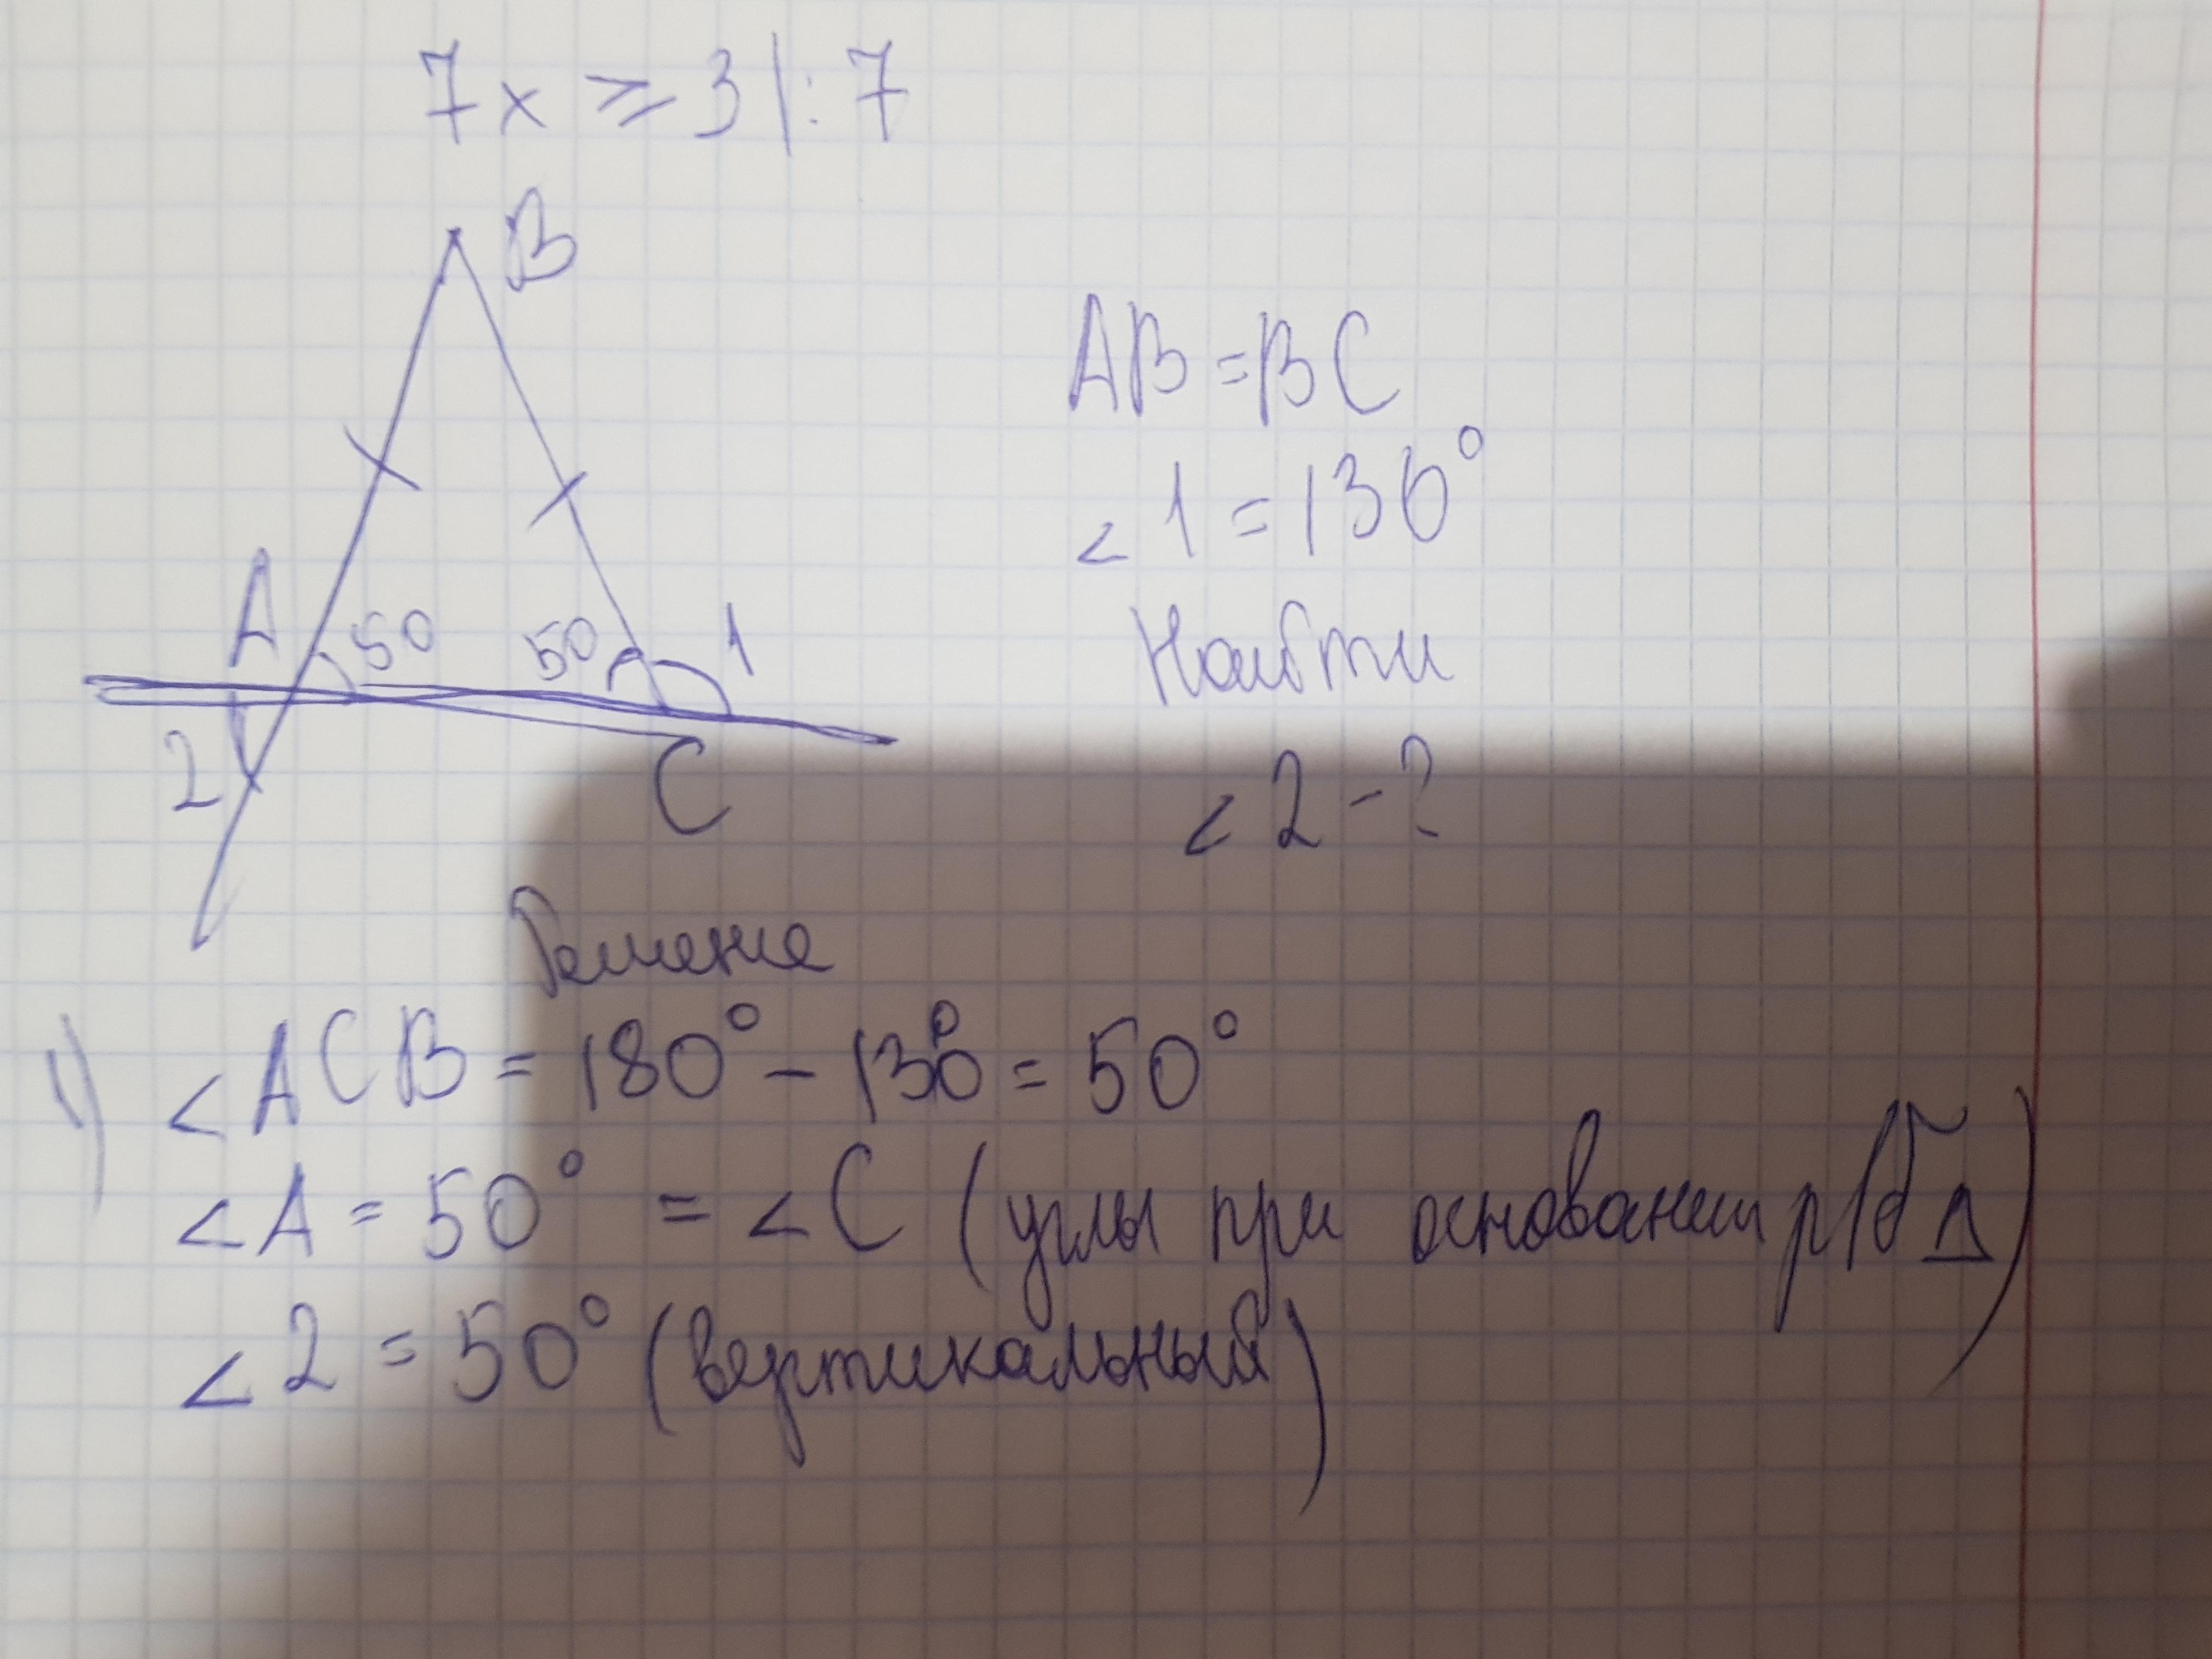 7x ≥ 3 | : 7
B
AB = BC
∠1 = 130°
A 50 50 1
Найти
2 C
∠2 - ?
Решение
1) ∠ACB = 180° - 130° = 50°
∠A = 50° = ∠C (углы при основании р/б Δ)
∠2 = 50° (вертикальный)